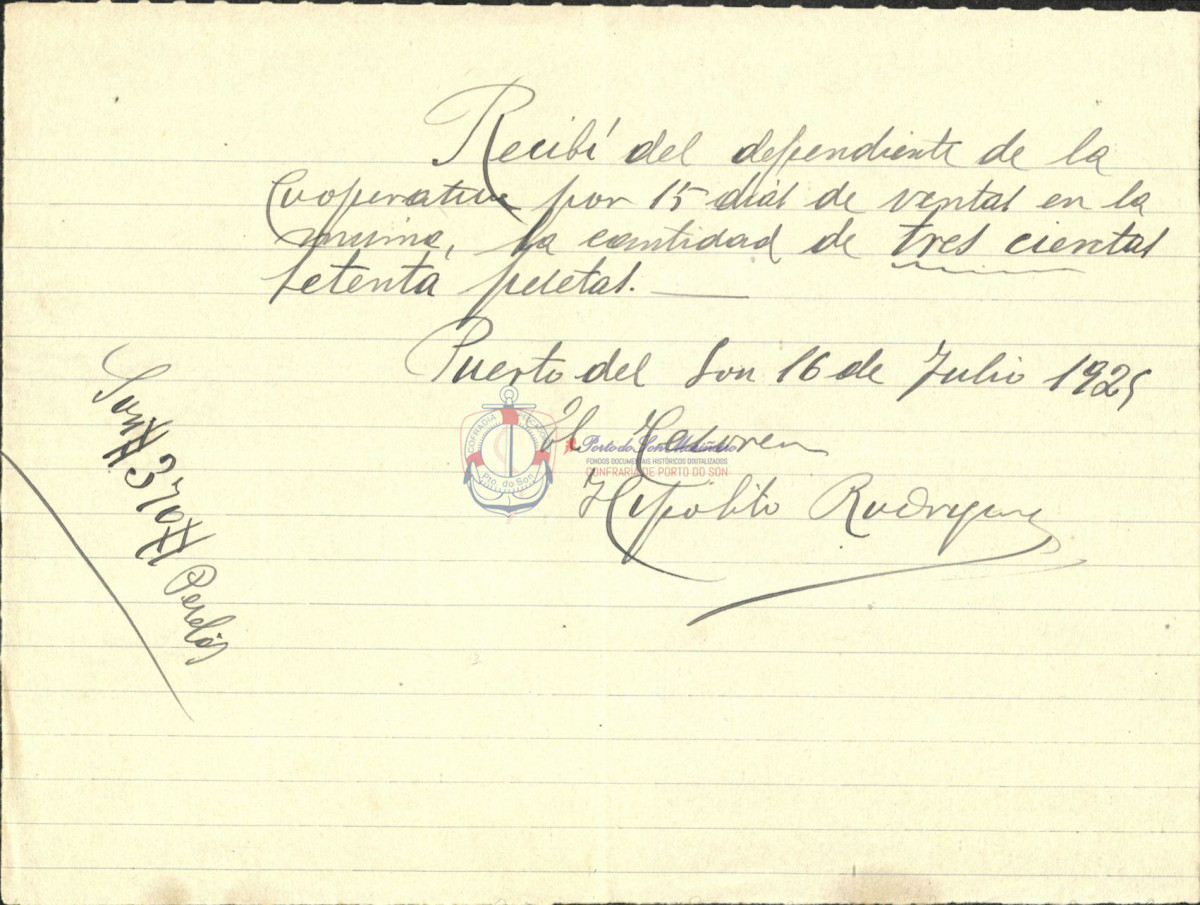 Recibí del dependiente de la
Cooperativa por 15 dias de ventas en la
misma, la cantidad de tres cientas
setenta pesetas.
Puerto del Son 16 de Julio 1925
El Tesorero
Hipolito Rodriguez
Son # 370 # Pesetas
COFRADIA
Pto. do Son
Porto do Son Mariñeiro
FONDOS DOCUMENTAIS HISTÓRICOS DIXITALIZADOS
CONFRARÍA DE PORTO DO SON